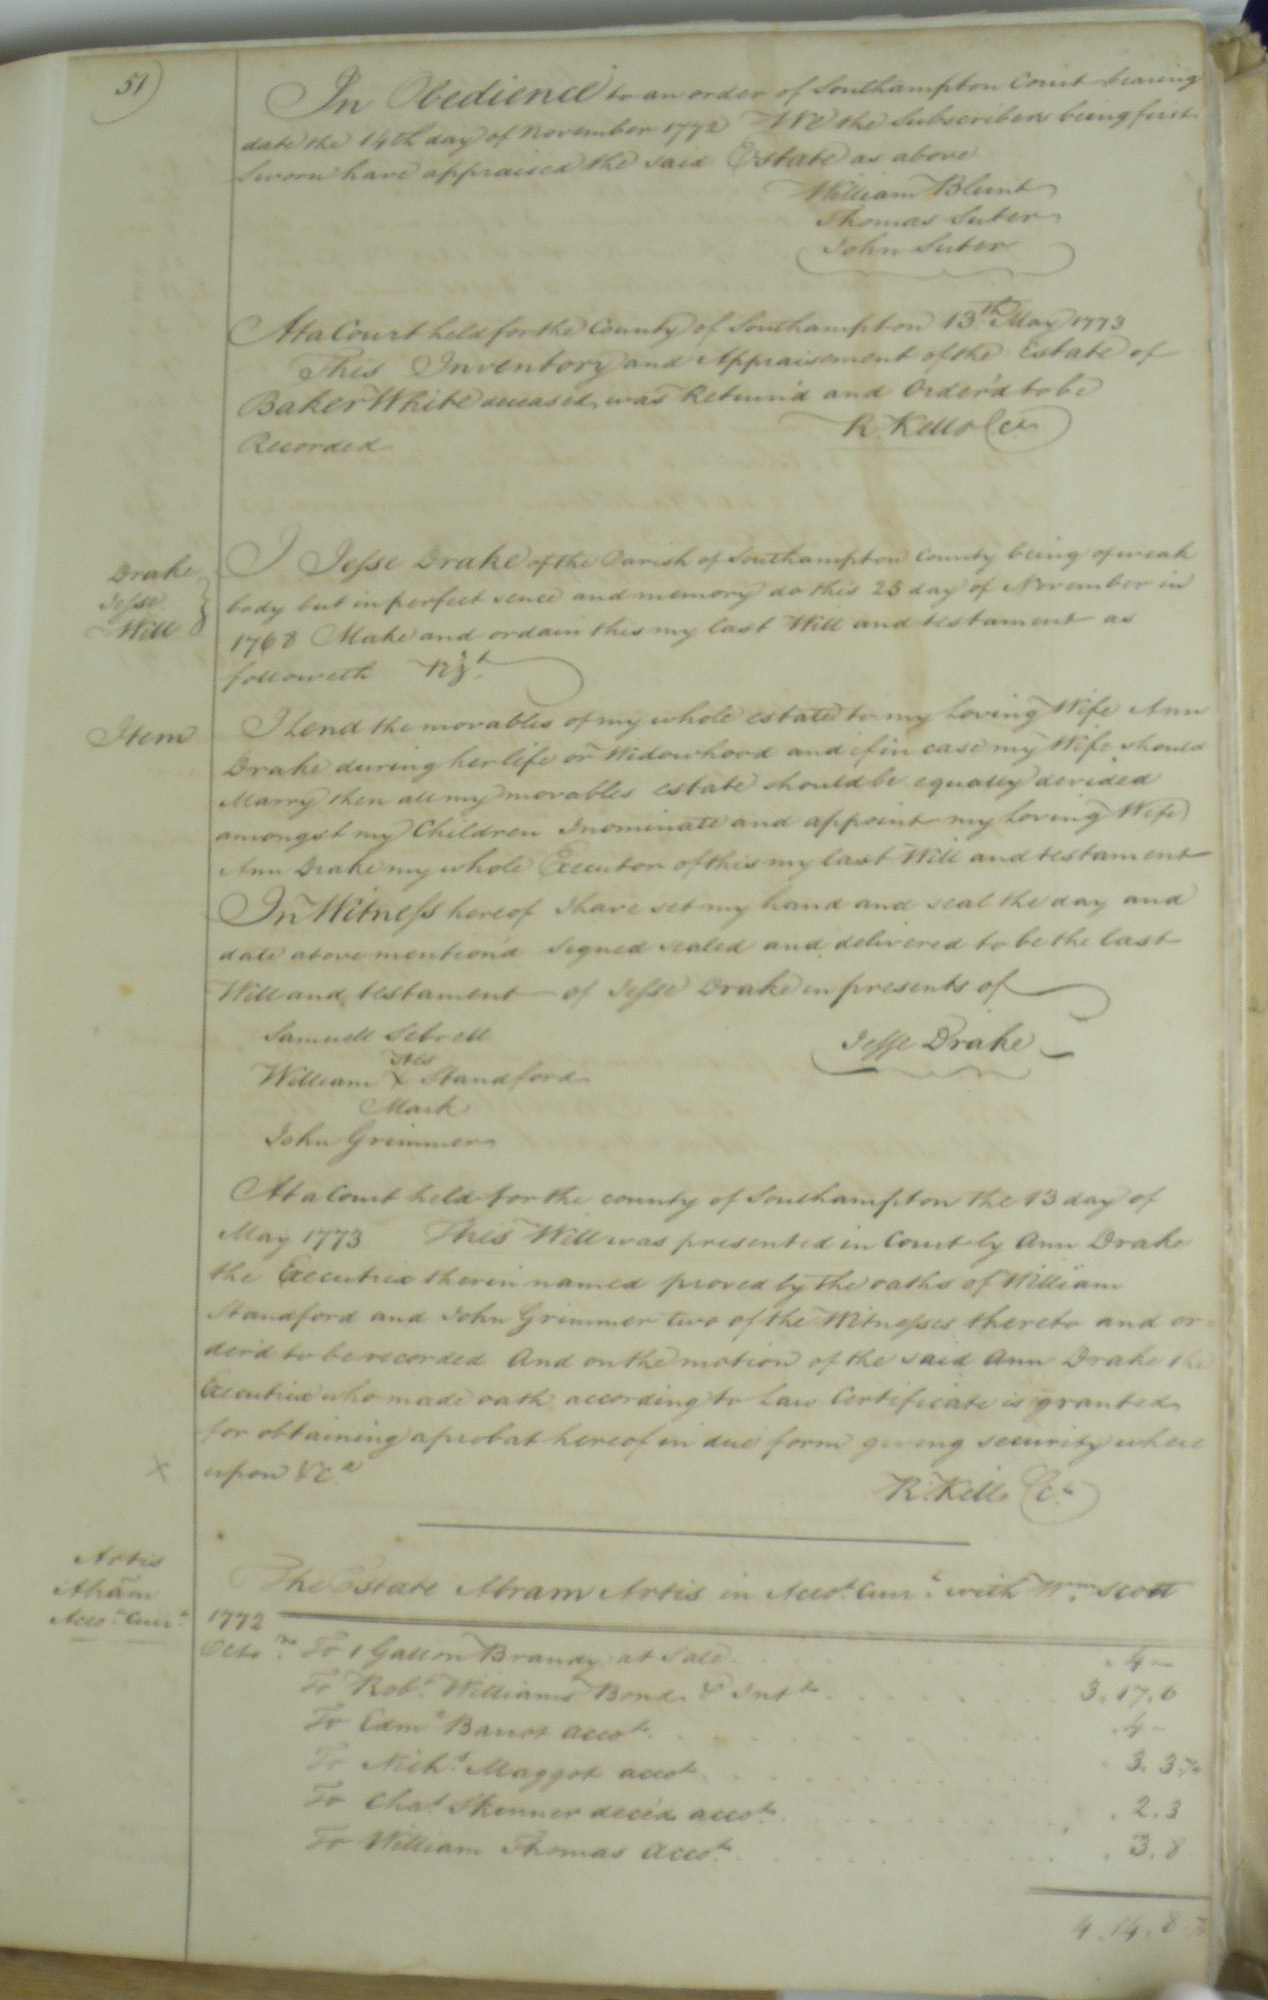 51)
In Obedience to an order of Southampton Court bearing
date the 14th day of November 1772 We the Subscribers being first
Sworn have appraised the said Estate as above
William Blunt
Thomas Suter
John Suter
At a Court held for the County of Southampton 13th May 1773
This Inventory and Appraisement of the Estate of
Baker White deceased was Return'd and Order'd to be
Recorded
R. Kello Cc
Drake
Jesse
Will
I Jesse Drake of the Parish of Southampton County being of weak
body but in perfect sence and memory do this 25 day of November in
1768 Make and ordain this my last Will and testament as
followeth
Item
I Lend the movables of my whole estate to my Loving Wife Ann
Drake during her life or Widowhood and if in case my Wife should
Marry then all my movables estate should be equally devided
amongst my Children I nominate and appoint my Loving Wife
Ann Drake my whole Executor of this my last Will and testament
In Witness hereof I have set my hand and seal the day and
date above mention'd Signed sealed and delivered to be the last
Will and testament of Jesse Drake in presents of
Samuell Sebrell
Jesse Drake
his
William X Standford
Mark
John Grimmer
At a Court held for the county of Southampton the 13 day of
May 1773 This Will was presented in Court by Ann Drake
the Executrix therin named proved by the oaths of William
Standford and John Grimmer two of the Witnesses thereto and or=
der'd to be recorded And on the motion of the said Ann Drake the
Executrix who made oath according to Law Certificate is granted
for obtaining a probat hereof in due form giving security where
X
upon &ca
R. Kello Cc
Artis
Abram
Acco.t Curr.t
The Estate Abram Artis in Acco.t Curr.t with Wm. Scott
1772
Octo To 1 Gallon Brandy at Sale . 4 -
To Rob.t Williams Bond & Int.t 3.17.6
To Edm.d Barrot acco.t . 4 -
To Nich.s Maggot acco.t . 3. 3
To Cha.s Skinner dece'd acco.t . 2. 3
To William Thomas acco.t . 3. 8
4.14.8